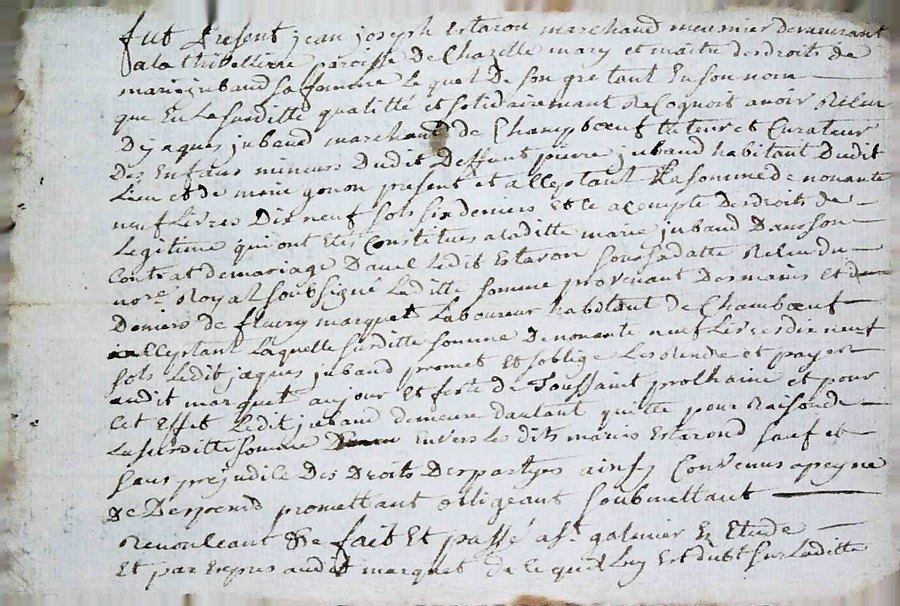 fut Present jean joseph Estaron marchand meusnier demeurant
a la thibelliere paroisse De Chazelle mary et maitre des droits de
marie jubaud sa famme Lequel De son gre tant En son nom
que En La surditte qualitté et solidairemant Recognois avoir Receu
De jaques jubaud marchand de Champbœuf tuteur et Curateur
Des Enfans mineurs Dudit Deffunt pierre jubaud habitant Dudit
Lieu et de marie gonon present et acceptant La somme de nonante
neuf Livres Dix neuf sols six deniers et ce a compte Des droits de
Legitime qui ont Etés Constitues a laditte marie jubaud Dans son
Contrat de mariage Davec Ledit Estaron sous sa datte Receu du
nore Royal soubsigné Laditte somme provenant Des mains et de
Deniers de fleury marquet Laboureur habitant de Chambœuf
acceptant Laquelle surditte somme De nonante neuf Livres dix neuf
sols Ledit jaques jubaud promet Et soblige Les rendre et payer
audit marquet au jour et feste de Toussaint prochaine et pour
Cet Effet Ledit jubaud demeure dautant quitte pour Raison de
La surditte somme envers Le dits maries Estarond sauf et
sans prejudice Des Droits Des partyes ainsy Convenus a peyne
De Despends promettant obligeant soubmettant
Renonceant &e fait Et passé a st galmier En Etude
Et par Expres audit marquet de ce quil Luy Est dubt sur Laditte